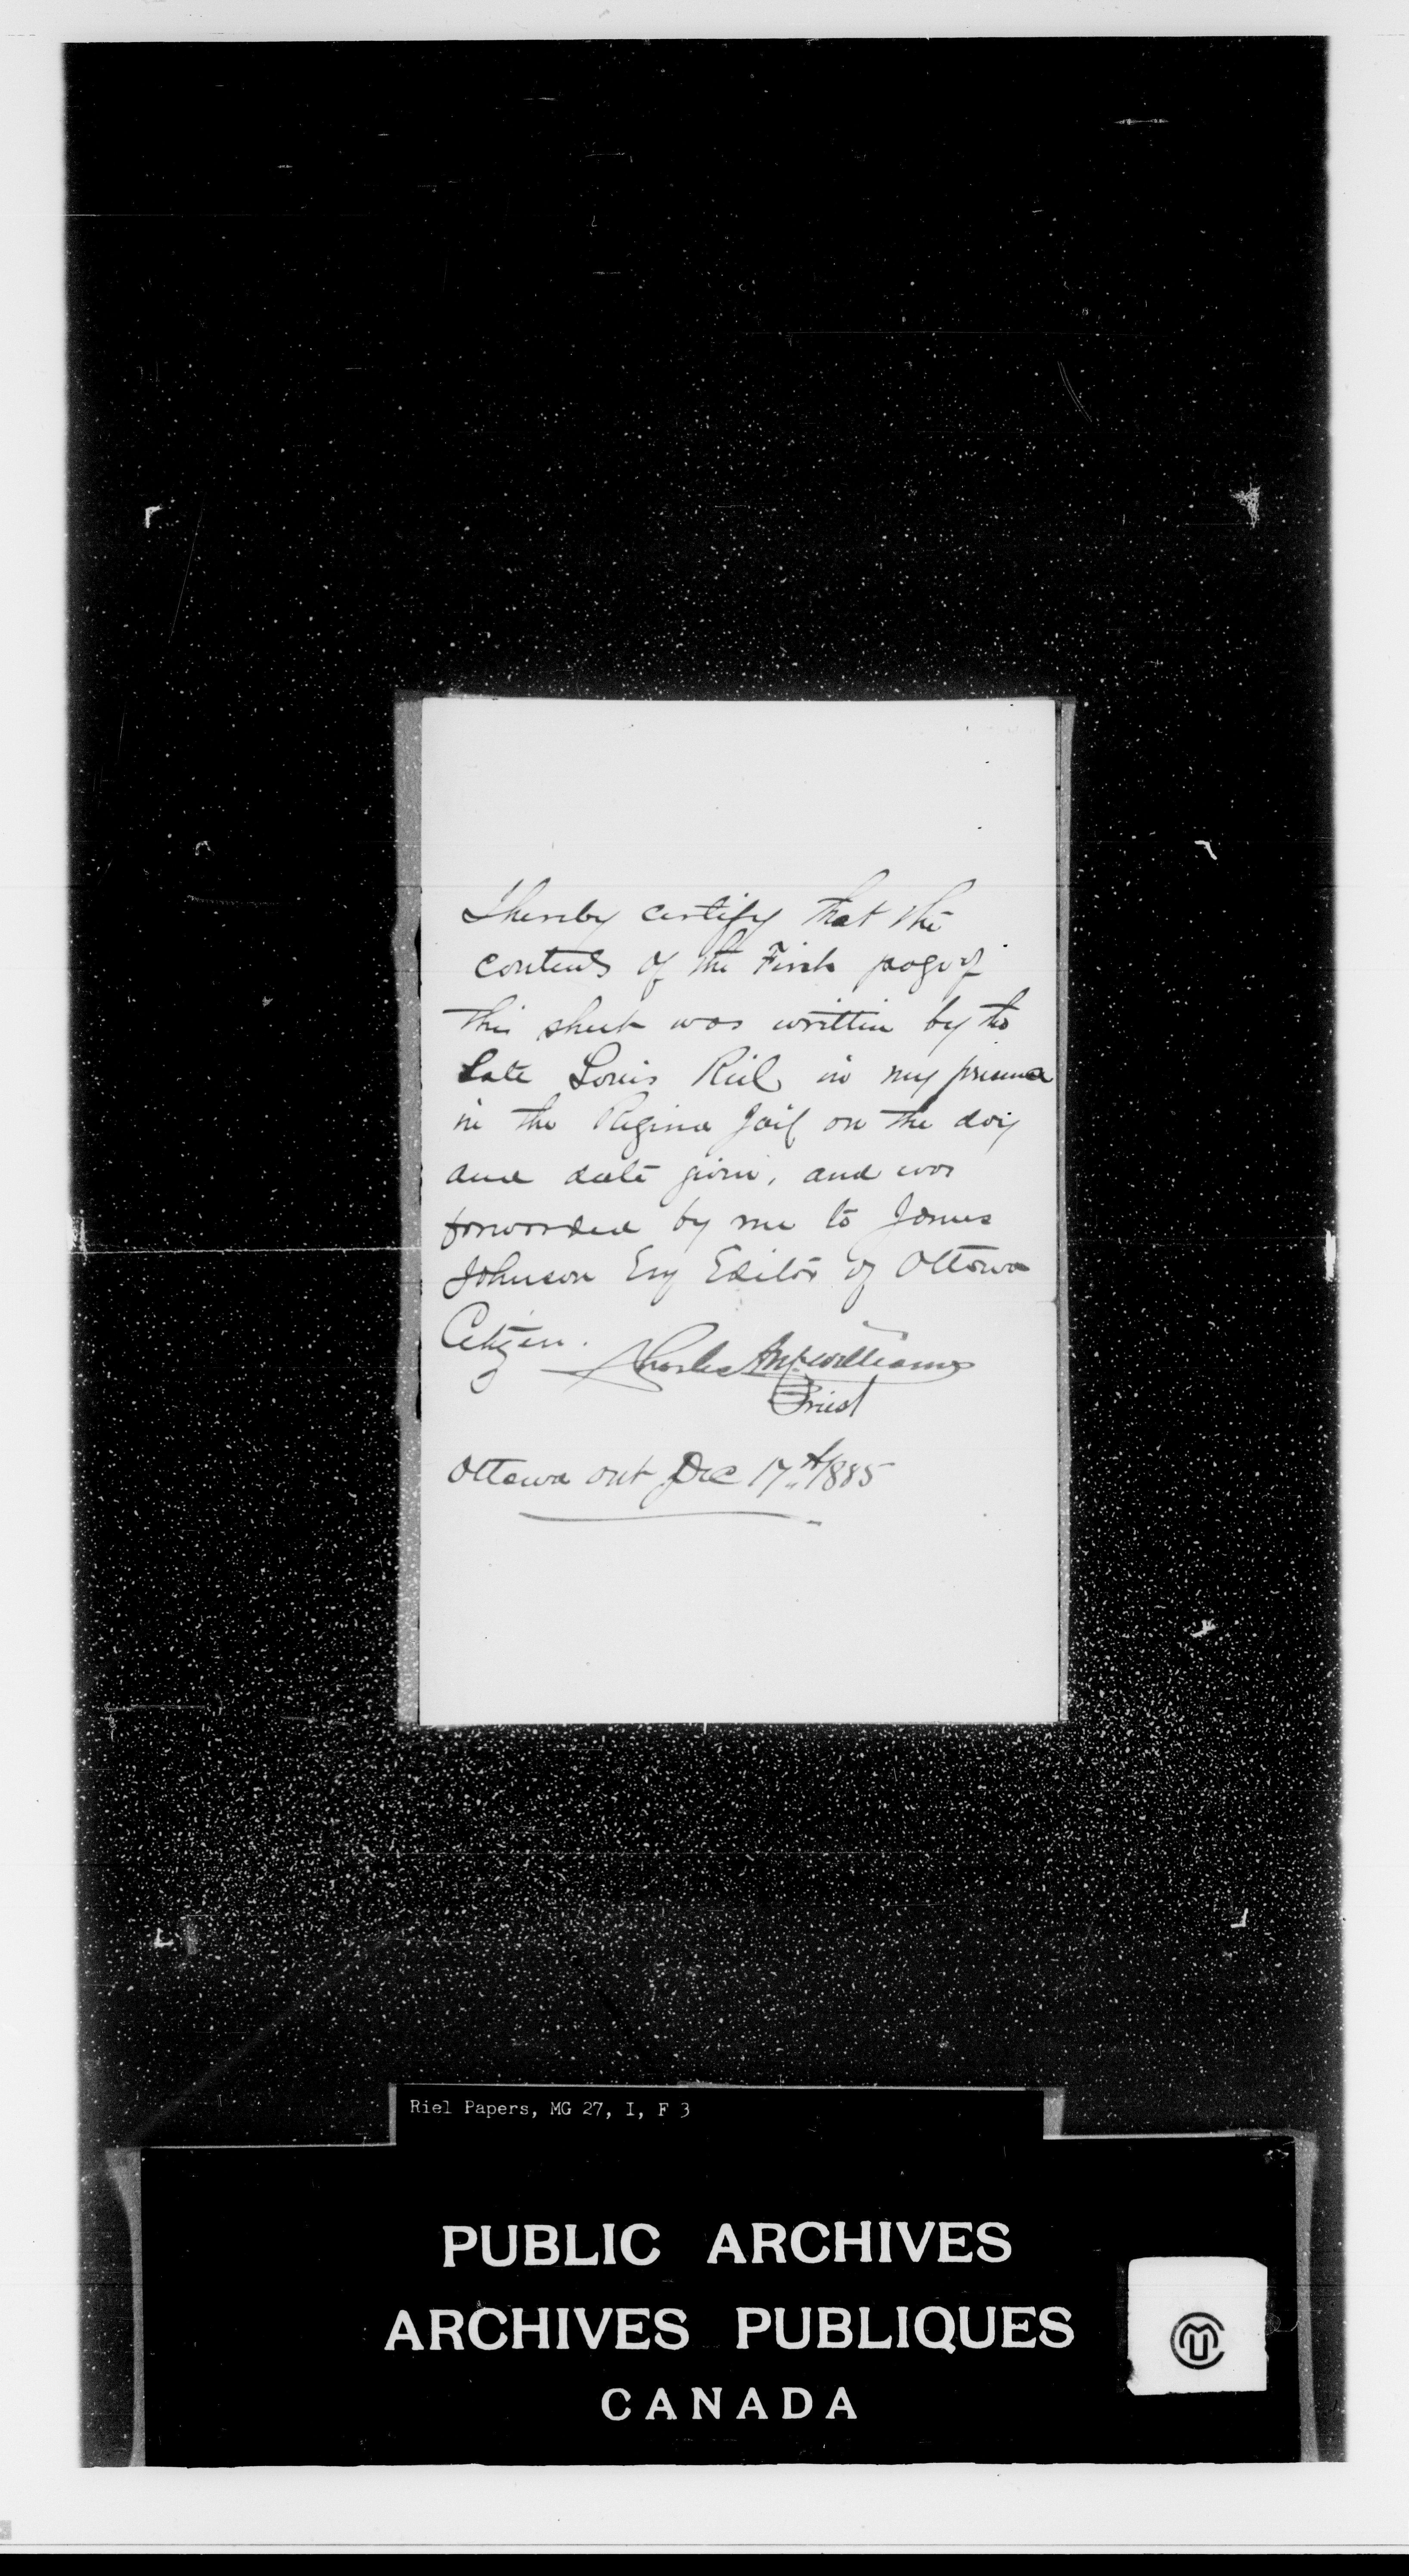 I hereby certify that the
contents of the First page of
this sheet was written by the
late Louis Riel in my presence
in the Regina Jail on the day
and date given, and was
forwarded by me to James
Johnson Esq Editor of Ottawa
Citizen.
Charles McWilliams
Priest
Ottawa Ont Dec 17th/1885
Riel Papers, MG 27, I, F 3
PUBLIC ARCHIVES
ARCHIVES PUBLIQUES
CANADA